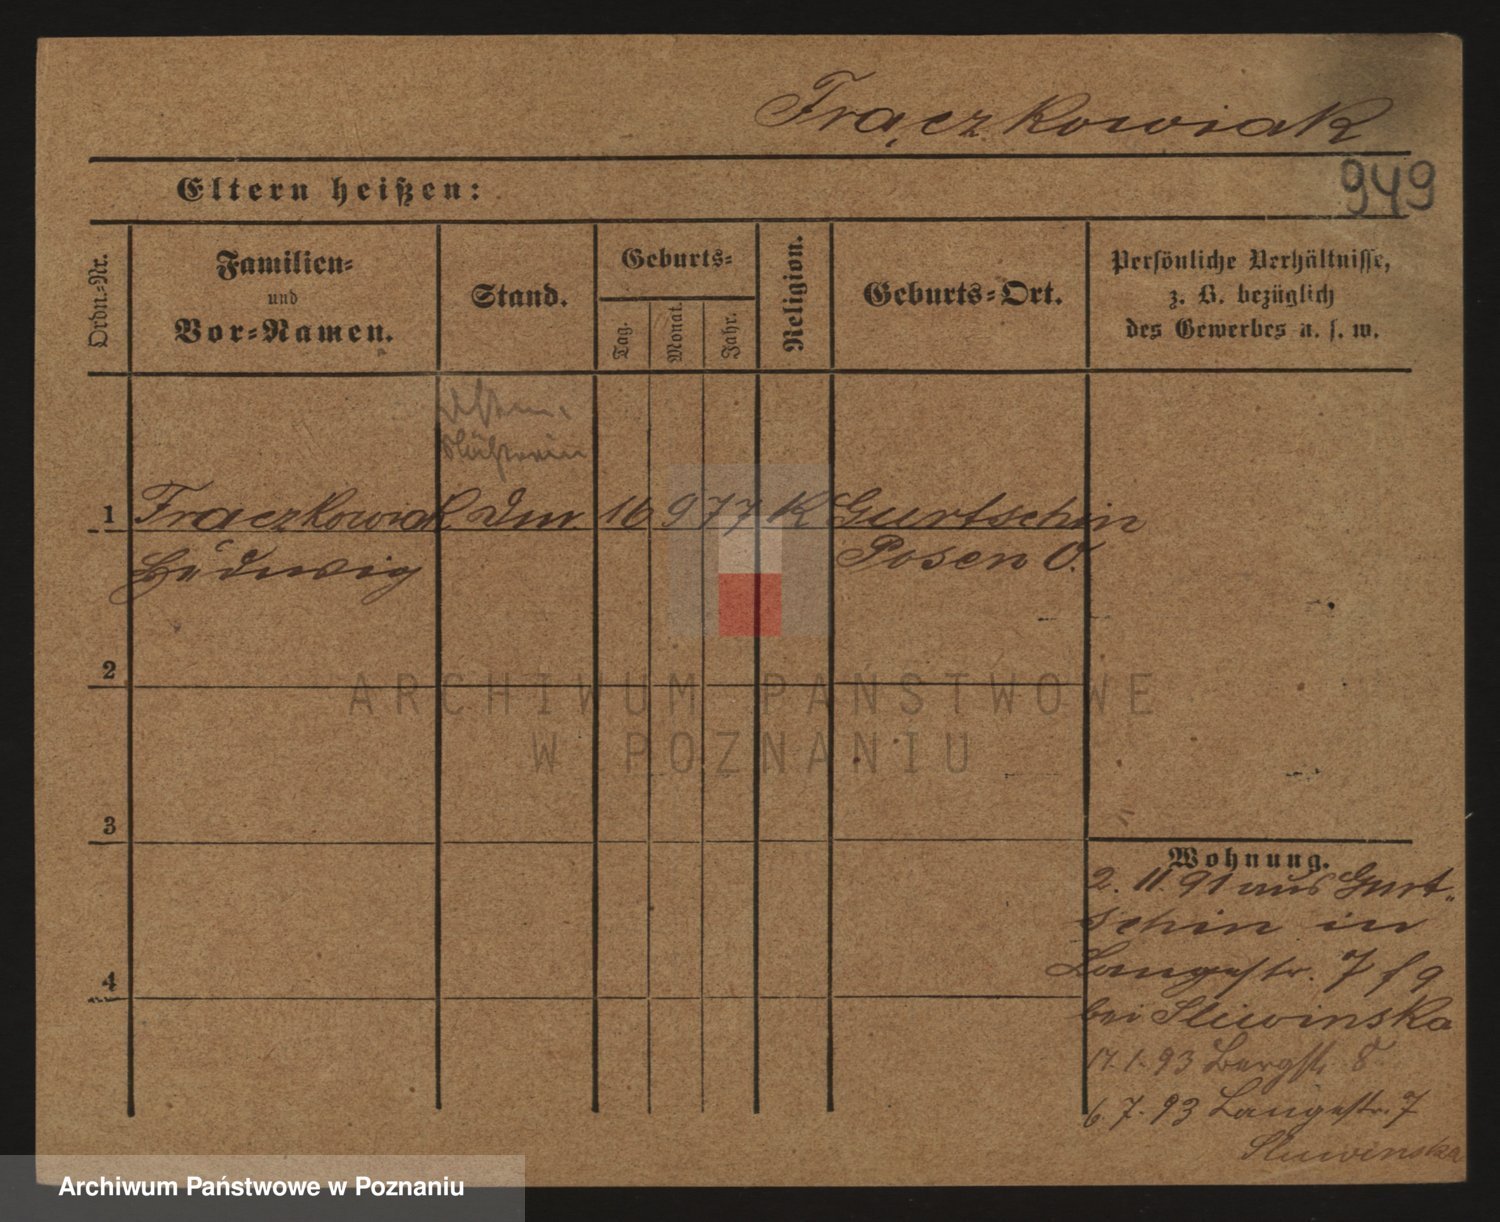 Frączkowiak
949
Eltern heißen:
Ordn.-Nr.
Familien-
und
Vor-Namen.
Stand.
Geburts-
Tag.
Monat.
Jahr.
Religion.
Geburts-Ort.
Persönliche Verhältnisse,
z. B. bezüglich
des Gewerbes u. s. w.
1 Fraczkowiak 16 9 77 K Gurtschin
Hedwig Posen O.
2
3
4
Wohnung.
2. 11. 91 aus Gurt-
schin in
Langestr. 7
bei Sliwinska
17. 1. 93 Bergstr. 8
6. 7. 93 Langestr. 7
Sliwinska
ARCHIWUM PAŃSTWOWE
W POZNANIU
Archiwum Państwowe w Poznaniu